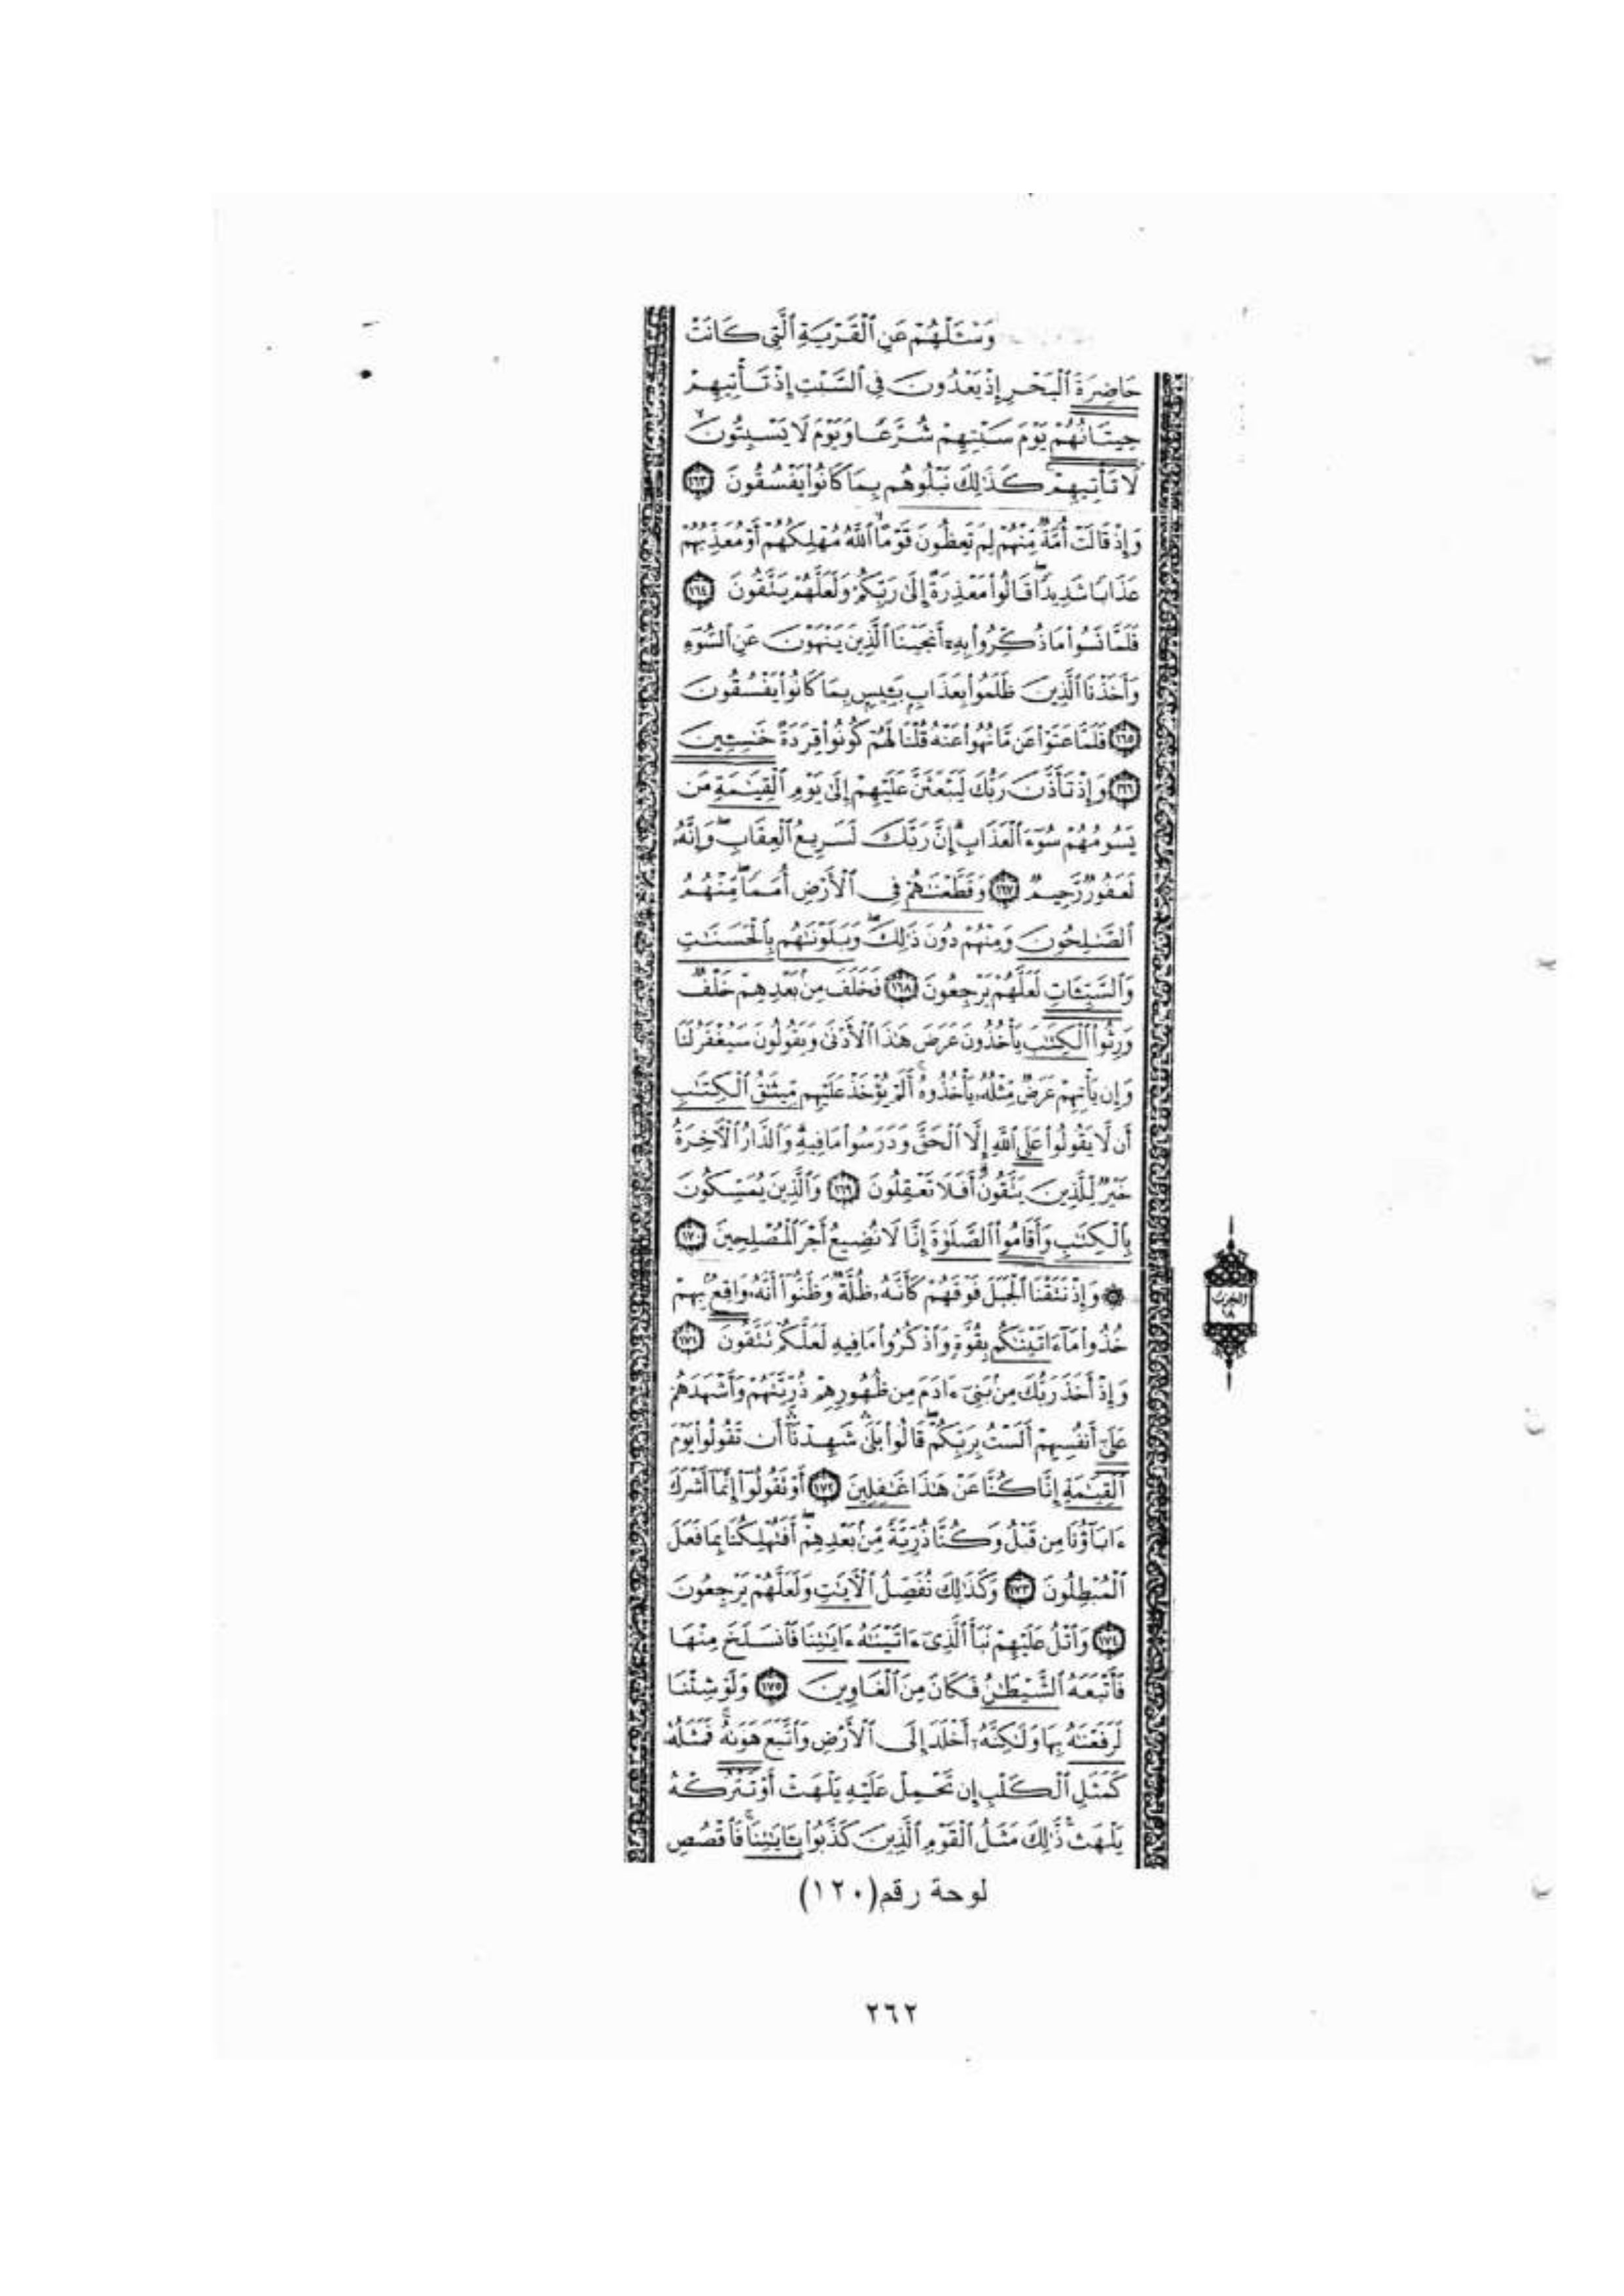 وَسْـَٔلْهُمْ عَنِ ٱلْقَرْيَةِ ٱلَّتِى كَانَتْ
حَاضِرَةَ ٱلْبَحْرِ إِذْ يَعْدُونَ فِى ٱلسَّبْتِ إِذْ تَأْتِيهِمْ
حِيتَانُهُمْ يَوْمَ سَبْتِهِمْ شُرَّعًا وَيَوْمَ لَا يَسْبِتُونَ ۙ
لَا تَأْتِيهِمْ ۚ كَذَٰلِكَ نَبْلُوهُم بِمَا كَانُوا۟ يَفْسُقُونَ ﴿١٦٣﴾
وَإِذْ قَالَتْ أُمَّةٌ مِّنْهُمْ لِمَ تَعِظُونَ قَوْمًا ۙ ٱللَّهُ مُهْلِكُهُمْ أَوْ مُعَذِّبُهُمْ
عَذَابًا شَدِيدًا ۖ قَالُوا۟ مَعْذِرَةً إِلَىٰ رَبِّكُمْ وَلَعَلَّهُمْ يَتَّقُونَ ﴿١٦٤﴾
فَلَمَّا نَسُوا۟ مَا ذُكِّرُوا۟ بِهِۦٓ أَنجَيْنَا ٱلَّذِينَ يَنْهَوْنَ عَنِ ٱلسُّوٓءِ
وَأَخَذْنَا ٱلَّذِينَ ظَلَمُوا۟ بِعَذَابٍۭ بَـِٔيسٍۭ بِمَا كَانُوا۟ يَفْسُقُونَ
﴿١٦٥﴾ فَلَمَّا عَتَوْا۟ عَن مَّا نُهُوا۟ عَنْهُ قُلْنَا لَهُمْ كُونُوا۟ قِرَدَةً خَـٰسِـِٔينَ
﴿١٦٦﴾ وَإِذْ تَأَذَّنَ رَبُّكَ لَيَبْعَثَنَّ عَلَيْهِمْ إِلَىٰ يَوْمِ ٱلْقِيَـٰمَةِ مَن
يَسُومُهُمْ سُوٓءَ ٱلْعَذَابِ ۗ إِنَّ رَبَّكَ لَسَرِيعُ ٱلْعِقَابِ ۖ وَإِنَّهُۥ
لَغَفُورٌ رَّحِيمٌ ﴿١٦٧﴾ وَقَطَّعْنَـٰهُمْ فِى ٱلْأَرْضِ أُمَمًا ۖ مِّنْهُمُ
ٱلصَّـٰلِحُونَ وَمِنْهُمْ دُونَ ذَٰلِكَ ۖ وَبَلَوْنَـٰهُم بِٱلْحَسَنَـٰتِ
وَٱلسَّيِّـَٔاتِ لَعَلَّهُمْ يَرْجِعُونَ ﴿١٦٨﴾ فَخَلَفَ مِنۢ بَعْدِهِمْ خَلْفٌ
وَرِثُوا۟ ٱلْكِتَـٰبَ يَأْخُذُونَ عَرَضَ هَـٰذَا ٱلْأَدْنَىٰ وَيَقُولُونَ سَيُغْفَرُ لَنَا
وَإِن يَأْتِهِمْ عَرَضٌ مِّثْلُهُۥ يَأْخُذُوهُ ۚ أَلَمْ يُؤْخَذْ عَلَيْهِم مِّيثَـٰقُ ٱلْكِتَـٰبِ
أَن لَّا يَقُولُوا۟ عَلَى ٱللَّهِ إِلَّا ٱلْحَقَّ وَدَرَسُوا۟ مَا فِيهِ ۗ وَٱلدَّارُ ٱلْـَٔاخِرَةُ
خَيْرٌ لِّلَّذِينَ يَتَّقُونَ ۗ أَفَلَا تَعْقِلُونَ ﴿١٦٩﴾ وَٱلَّذِينَ يُمَسِّكُونَ
بِٱلْكِتَـٰبِ وَأَقَامُوا۟ ٱلصَّلَوٰةَ إِنَّا لَا نُضِيعُ أَجْرَ ٱلْمُصْلِحِينَ ﴿١٧٠﴾
۞ وَإِذْ نَتَقْنَا ٱلْجَبَلَ فَوْقَهُمْ كَأَنَّهُۥ ظُلَّةٌ وَظَنُّوٓا۟ أَنَّهُۥ وَاقِعٌۢ بِهِمْ
خُذُوا۟ مَآ ءَاتَيْنَـٰكُم بِقُوَّةٍ وَٱذْكُرُوا۟ مَا فِيهِ لَعَلَّكُمْ تَتَّقُونَ ﴿١٧١﴾
وَإِذْ أَخَذَ رَبُّكَ مِنۢ بَنِىٓ ءَادَمَ مِن ظُهُورِهِمْ ذُرِّيَّتَهُمْ وَأَشْهَدَهُمْ
عَلَىٰٓ أَنفُسِهِمْ أَلَسْتُ بِرَبِّكُمْ ۖ قَالُوا۟ بَلَىٰ ۛ شَهِدْنَآ ۛ أَن تَقُولُوا۟ يَوْمَ
ٱلْقِيَـٰمَةِ إِنَّا كُنَّا عَنْ هَـٰذَا غَـٰفِلِينَ ﴿١٧٢﴾ أَوْ تَقُولُوٓا۟ إِنَّمَآ أَشْرَكَ
ءَابَآؤُنَا مِن قَبْلُ وَكُنَّا ذُرِّيَّةً مِّنۢ بَعْدِهِمْ ۖ أَفَتُهْلِكُنَا بِمَا فَعَلَ
ٱلْمُبْطِلُونَ ﴿١٧٣﴾ وَكَذَٰلِكَ نُفَصِّلُ ٱلْـَٔايَـٰتِ وَلَعَلَّهُمْ يَرْجِعُونَ
﴿١٧٤﴾ وَٱتْلُ عَلَيْهِمْ نَبَأَ ٱلَّذِىٓ ءَاتَيْنَـٰهُ ءَايَـٰتِنَا فَٱنسَلَخَ مِنْهَا
فَأَتْبَعَهُ ٱلشَّيْطَـٰنُ فَكَانَ مِنَ ٱلْغَاوِينَ ﴿١٧٥﴾ وَلَوْ شِئْنَا
لَرَفَعْنَـٰهُ بِهَا وَلَـٰكِنَّهُۥٓ أَخْلَدَ إِلَى ٱلْأَرْضِ وَٱتَّبَعَ هَوَىٰهُ ۚ فَمَثَلُهُۥ
كَمَثَلِ ٱلْكَلْبِ إِن تَحْمِلْ عَلَيْهِ يَلْهَثْ أَوْ تَتْرُكْهُ
يَلْهَث ۚ ذَّٰلِكَ مَثَلُ ٱلْقَوْمِ ٱلَّذِينَ كَذَّبُوا۟ بِـَٔايَـٰتِنَا ۚ فَٱقْصُصِ
الحزب
١٨
لوحة رقم (١٢٠)
٢٦٢